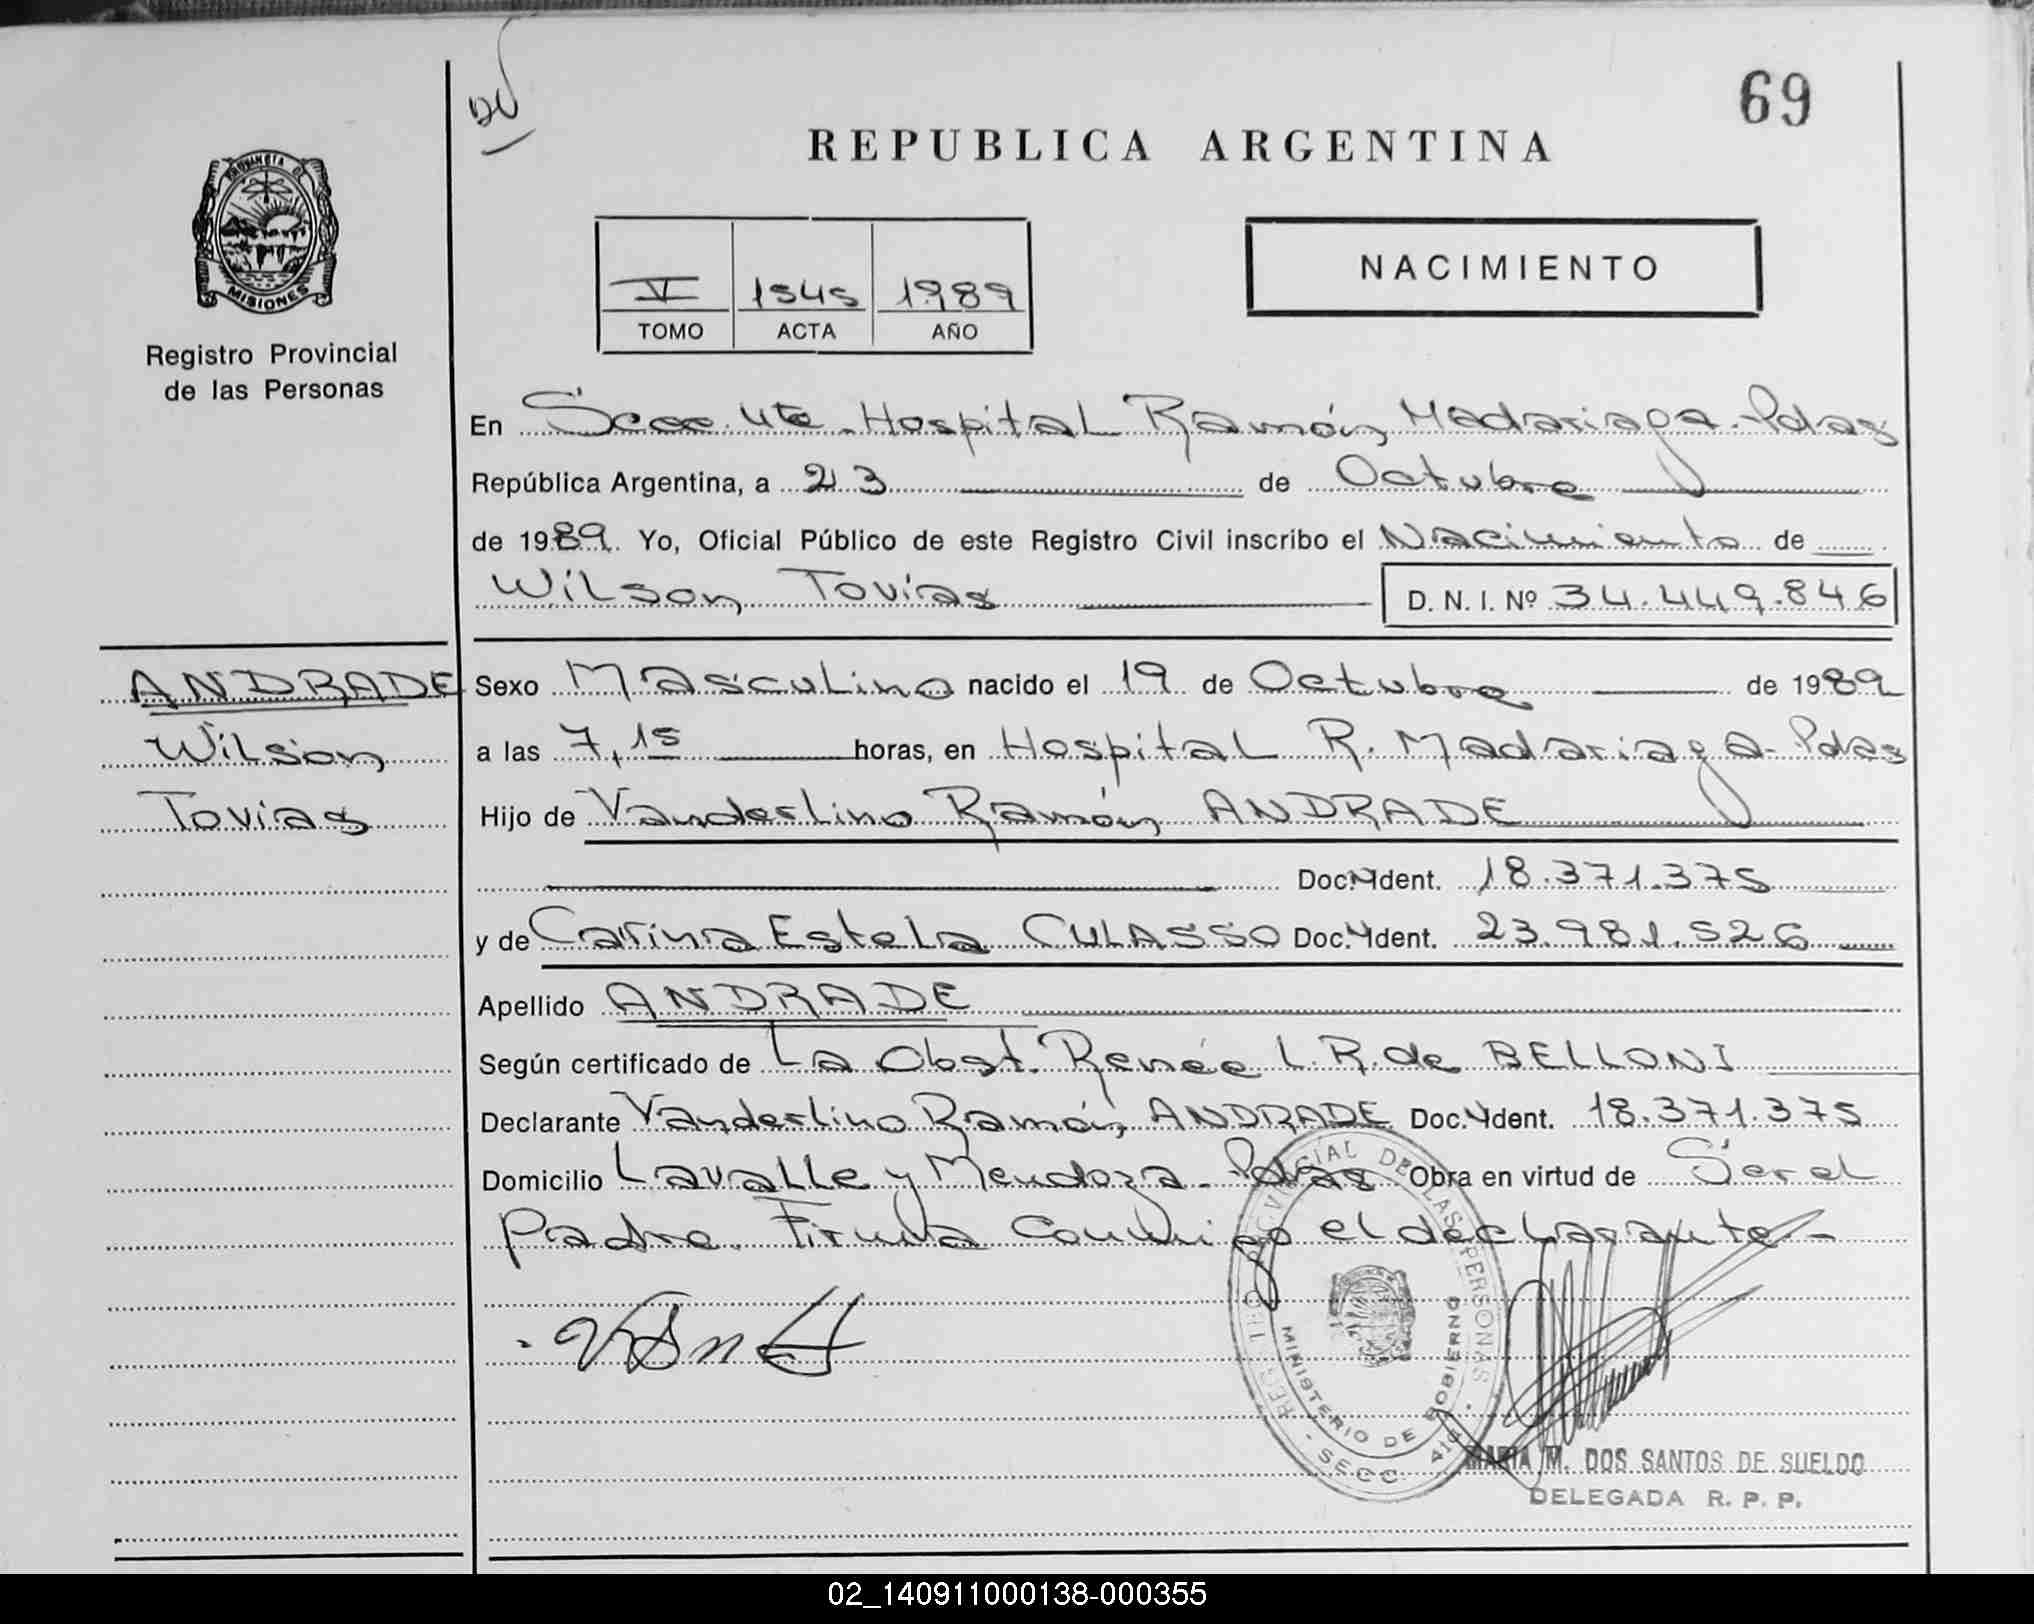 69
REPUBLICA ARGENTINA
PROVINCIA DE
MISIONES
Registro Provincial
de las Personas
V 1545 1989
TOMO ACTA AÑO
NACIMIENTO
En Secc. 4ta. Hospital Ramón Madariaga - Pdas
República Argentina, a 23 de Octubre
de 1989. Yo, Oficial Público de este Registro Civil inscribo el Nacimiento de
Wilson Tovias D. N. I. Nº 34.449.846
ANDRADE
Wilson
Tovias
Sexo Masculino nacido el 19 de Octubre de 1989
a las 7,15 horas, en Hospital R. Madariaga - Pdas
Hijo de Vanderlino Ramón ANDRADE
Doc. Ident. 18.371.375
y de Carina Estela CULASSO Doc. Ident. 23.981.526
Apellido ANDRADE
Según certificado de La Obst. Renée L. R. de BELLONI
Declarante Vanderlino Ramón ANDRADE Doc. Ident. 18.371.375
Domicilio Lavalle y Mendoza - Pdas Obra en virtud de Ser el
Padre. Firma Conmigo el declarante -
REG. PROVINCIAL DE LAS PERSONAS
MINISTERIO DE GOBIERNO
SECC. 4ta
MARIA M. DOS SANTOS DE SUELDO
DELEGADA R. P. P.
02_140911000138-000355